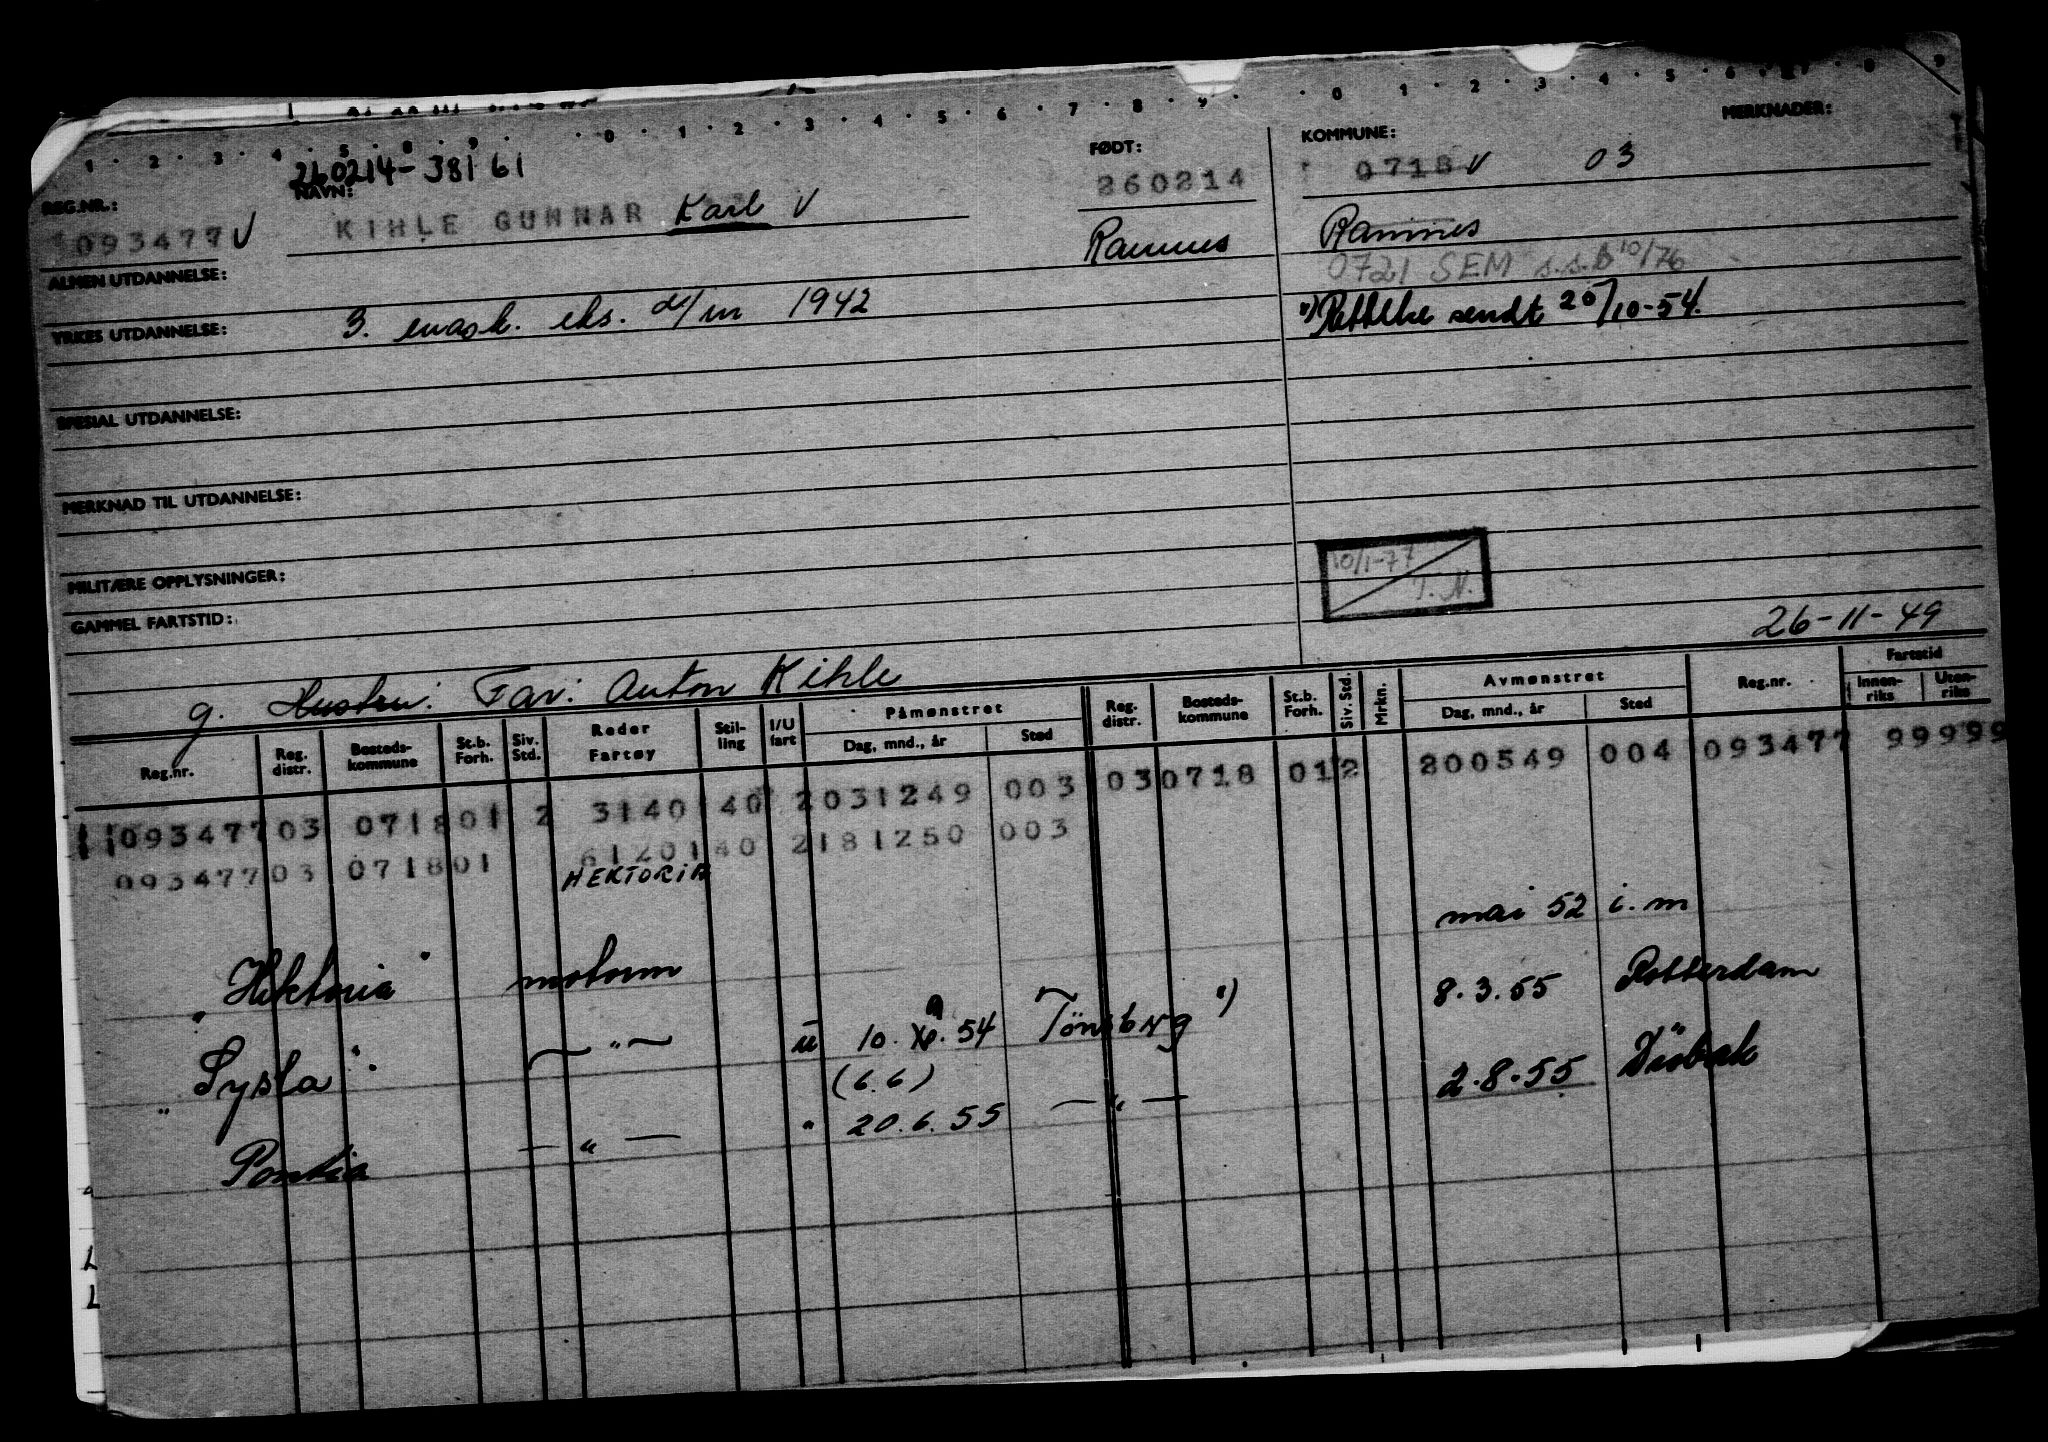 1 · 2 · 3 · 4 · 5 · 8 · 9 · · 0 · 1 · 2 · 3 · 4 · 5 · 6 · 7 · 8 · 9 · · 0 1 · 2 · 3 · 4 · 5 · 6 · 7 · 8 9
MERKNADER:
260214-38161
FØDT:
KOMMUNE:
REG.NR.:
NAVN:
093477 V
KIHLE GUNNAR Karl V
260214
0718 V 03
Ramnes
Ramnes
0721 SEM s.s.B 10/76
ALMEN UTDANNELSE:
YRKES UTDANNELSE:
3. mask. eks. d/m 1942
Rettelse sendt 20/10-54.
SPESIAL UTDANNELSE:
MERKNAD TIL UTDANNELSE:
MILITÆRE OPPLYSNINGER:
10/1-77
T. N.
GAMMEL FARTSTID:
26-11-49
g. Hustru: Far: Anton Kihle
Reg.nr. Reg. distr. Bosteds-kommune St.b. Forh. Siv. Std. Reder Fartøy Stil-ling I/U fart Påmønstret Dag, mnd., år Sted Reg. distr. Bosteds-kommune St.b. Forh. Siv. Std. Mrkn. Avmønstret Dag, mnd., år Sted Reg.nr. Fartstid Innen-riks Uten-riks
093477 03 0718 01 2 3140 40 2 031249 003 03 0718 01 2 200549 004 093477 99999
093477 03 0718 01 61201 40 2 181250 003
HEKTORIA
mai 52 i. m
"Hektoria" motorm 8.3.55 Rotterdam
"Sysla" — " — u 10. 9. 54 Tönsberg
(6.6)
Pontia — " — " 20.6.55 — " — 2.8.55